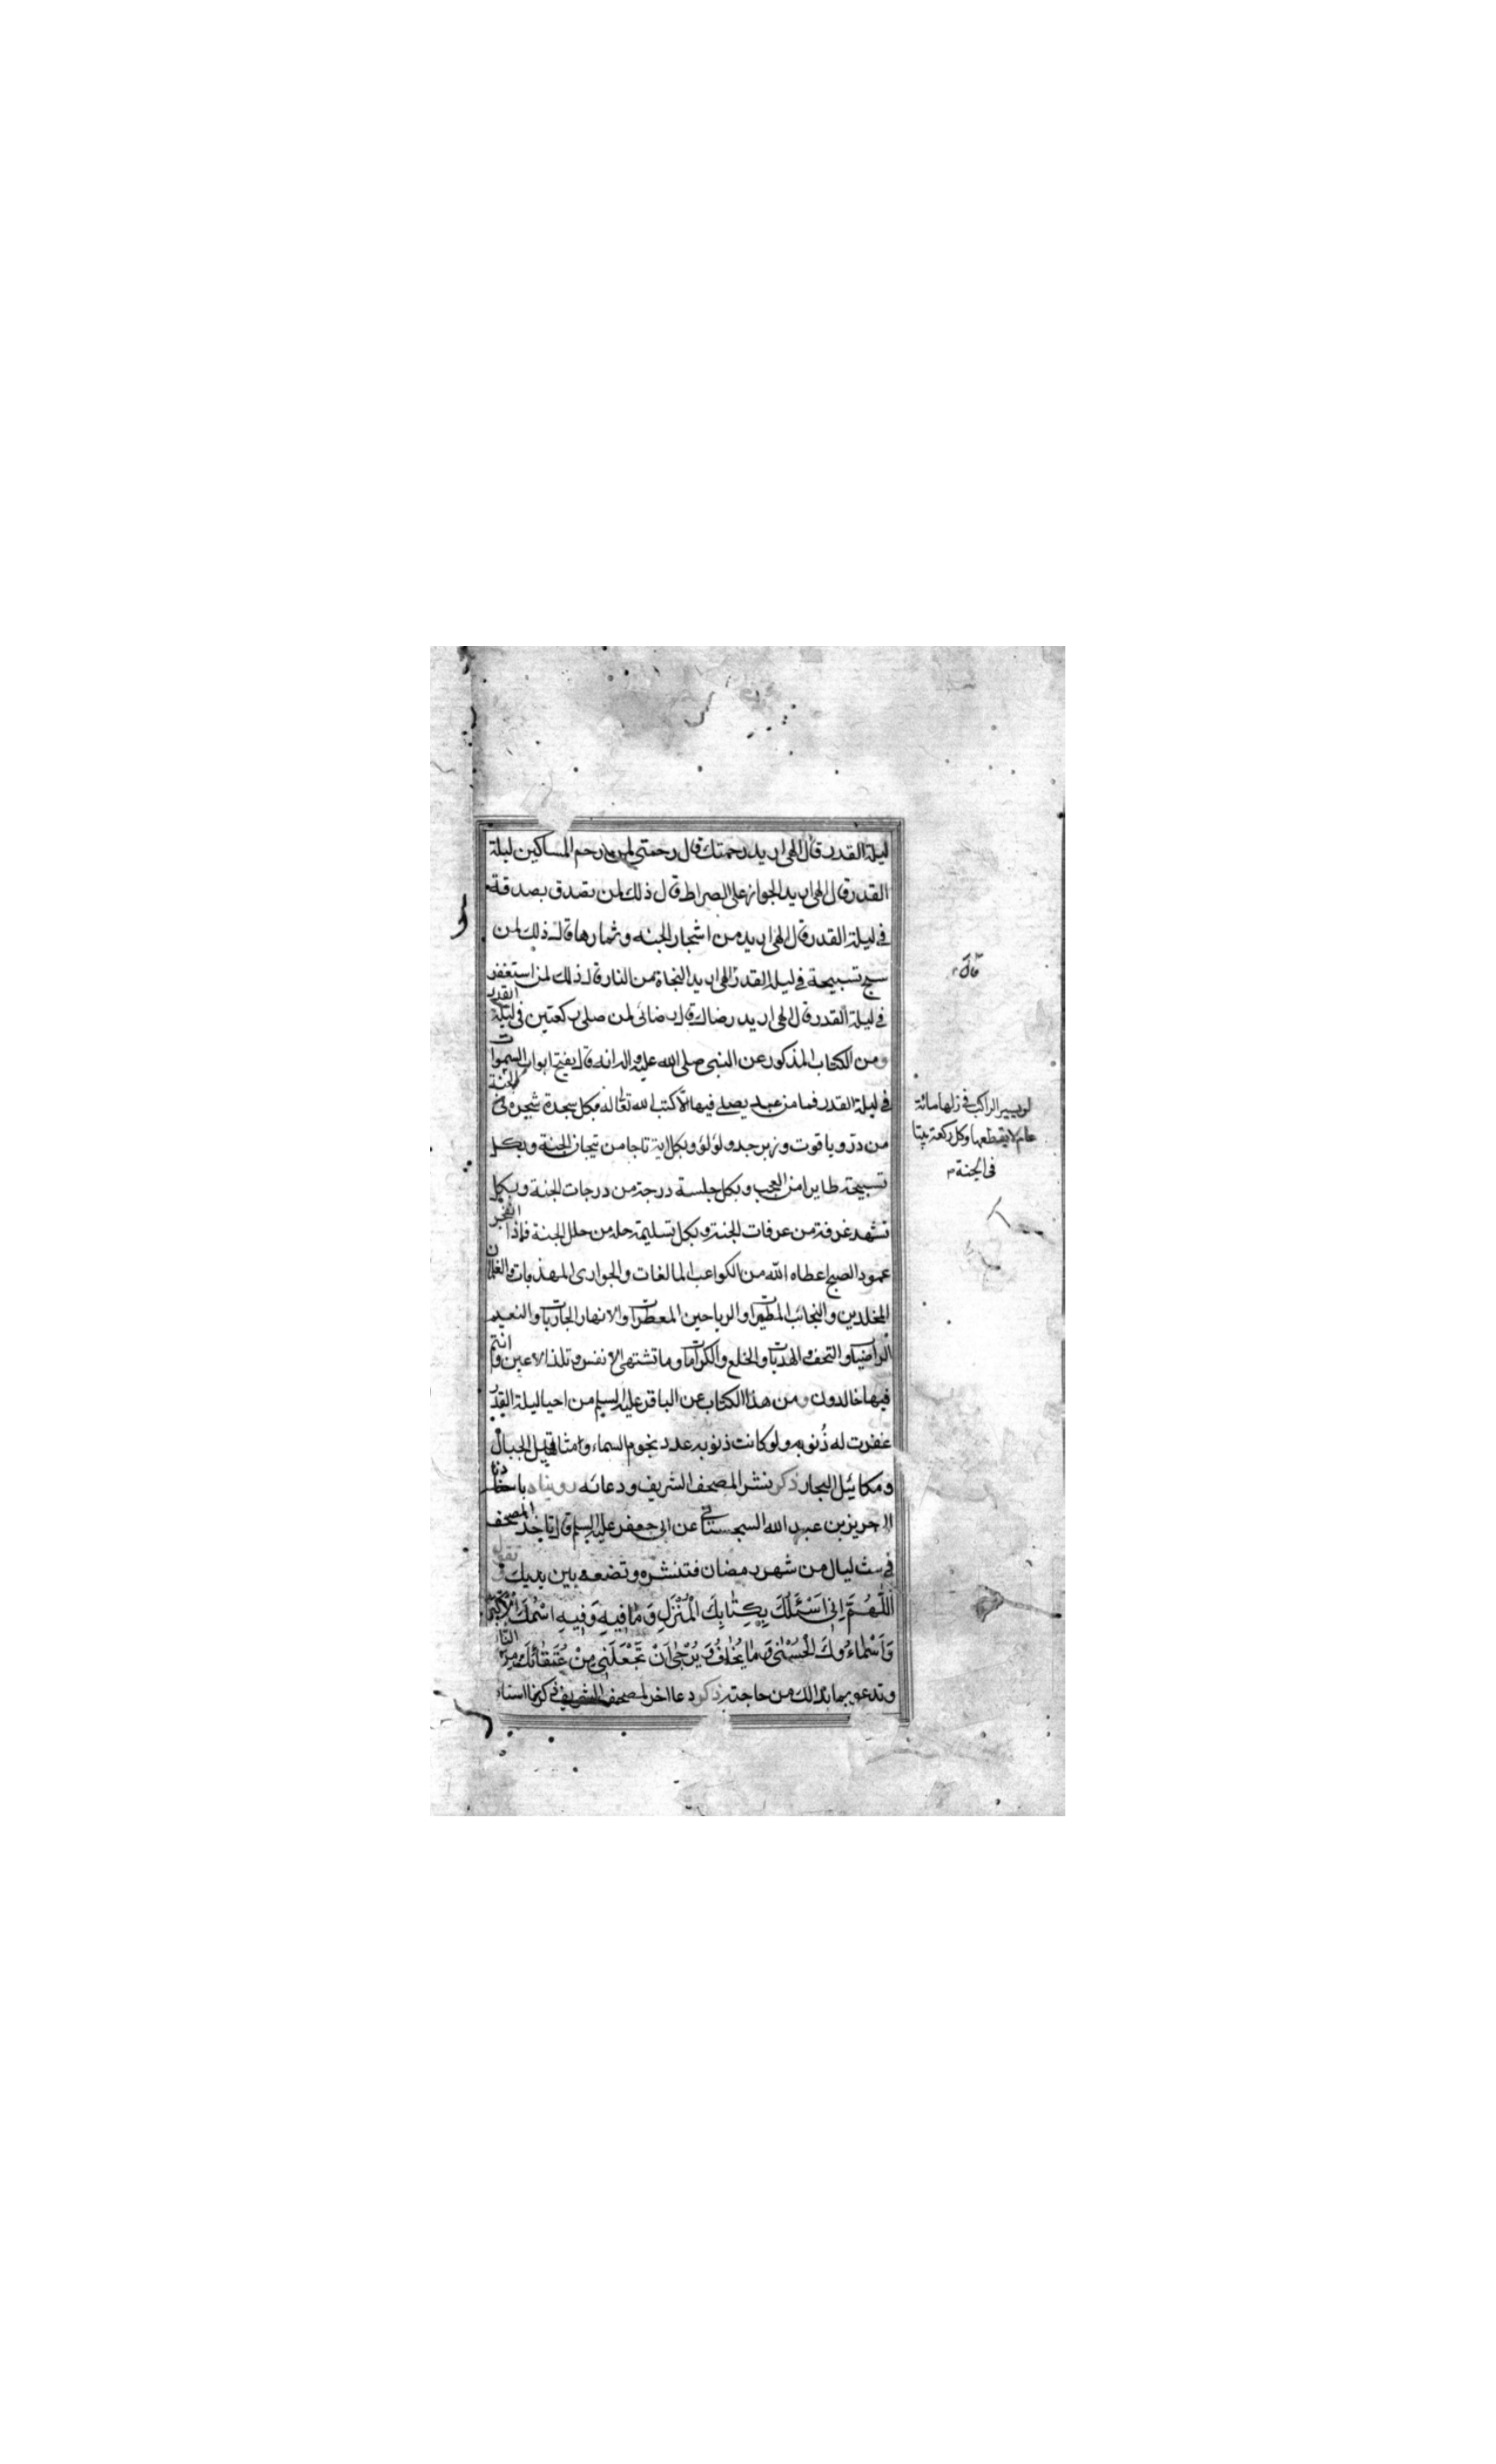 ليلة القدر قال الهى اريد رحمتك قال رحمتى لمن رحم المساكين ليلة
القدر قال الهى اريد الجواز على الصراط قال ذلك لمن تصدق بصدقة
فى ليلة القدر قال الهى اريد من اشجار الجنه وثمارها قال ذلك لمن
سبح تسبيحة فى ليلة القدر الهى اريد النجاة من النار قال ذلك لمن استغفر
فى ليلة القدر قال الهى اريد رضاك قال رضائى لمن صلى ركعتين فى ليلة القدر
ومن الكتاب المذكور عن النبى صلى الله عليه واله انه قال يفتح ابواب السموات
فى ليلة القدر فما من عبد يصلى فيها الا كتب الله تعالى له بكل سجدة شجرة فى الجنة
لو يسير الراكب فى ظلها مائة
عام لا يقطعها وكل ركعة بيتا
فى الجنة
من در وياقوت وزبرجد ولؤلؤ وبكل اية تاجا من تيجان الجنة وبكل
تسبيحة طايرا من العجب وبكل جلسة درجة من درجات الجنة وبكل
تشهد غرفة من عرفات الجنة وبكل تسليمة حلة من حلل الجنة فاذا انفجر
عمود الصبح اعطاه الله من الكواعب المالفات والجوارى المهذبات والغلمان
المخلدين والنجائب المطيرات والرياحين المعطرات والانهار الجاريات والنعيم
الراضيات والتحف والهديات والخلع والكرامات وما تشتهى الانفس وتلذ الاعين وانتم
فيها خالدون ومن هذا الكتاب عن الباقر عليه السلم من احيا ليلة القدر
غفرت له ذُنوبه ولو كانت ذنوبه عدد نجوم السماء ومثاقيل الجبال
ومكائيل البحار ذكر نشر المصحف الشريف ودعائه رويناه باسنادنا
الى حريز بن عبد الله السجستانى عن ابى جعفر عليه السلم قال تاخذ المصحف
فى ثلث ليال من شهر رمضان فتنشره وتضعه بين يديك وتقول
اَللّٰهُمَّ اِنِّى اَسْئَلُكَ بِكِتٰابِكَ الْمُنْزَلِ وَمٰا فيهِ وَفيهِ اسْمُكَ الْاَكْبَرُ
وَاَسْمٰاءُوكَ الْحُسْنٰى وَمٰا يُخٰافُ وَيُرْجٰى اَنْ تَجْعَلَنى مِنْ عُتَقٰائِكَ مِنَ النّار
وتدعو بما بدالك من حاجته ذكر دعا اخر لمصحف الشريف ذكرنا اسناد